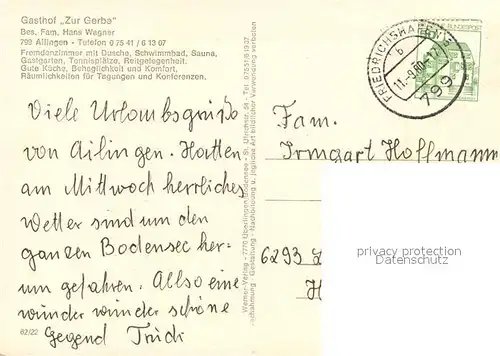 Gasthof „Zur Gerbe“
Bes. Fam. Hans Wagner
799 Ailingen - Telefon 0 75 41 / 6 13 07
Fremdenzimmer mit Dusche, Schwimmbad, Sauna,
Gastgarten, Tennisplätze, Reitgelegenheit.
Gute Küche, Behaglichkeit und Komfort,
Räumlichkeiten für Tagungen und Konferenzen.
Viele Urlaubsgrüße
von Ailingen. Hatten
am Mittwoch herrliches
Wetter sind um den
ganzen Bodensee her-
um gefahren. Allso eine
wunder wunder schöne
Gegend Trudi
62/22
Werner-Verlag - 7770 Überlingen/Bodensee - St. Ulrichstr. - Tel. 07551/
Gestaltung - Nachbildung u. jegliche Art bildlicher Verwendung verboten
FRIEDRICHSHAFEN
b
799
DEUTSCHE BUNDESPOST
Fam.
Irmgart Hoffmann
6293
privacy protection
Datenschutz